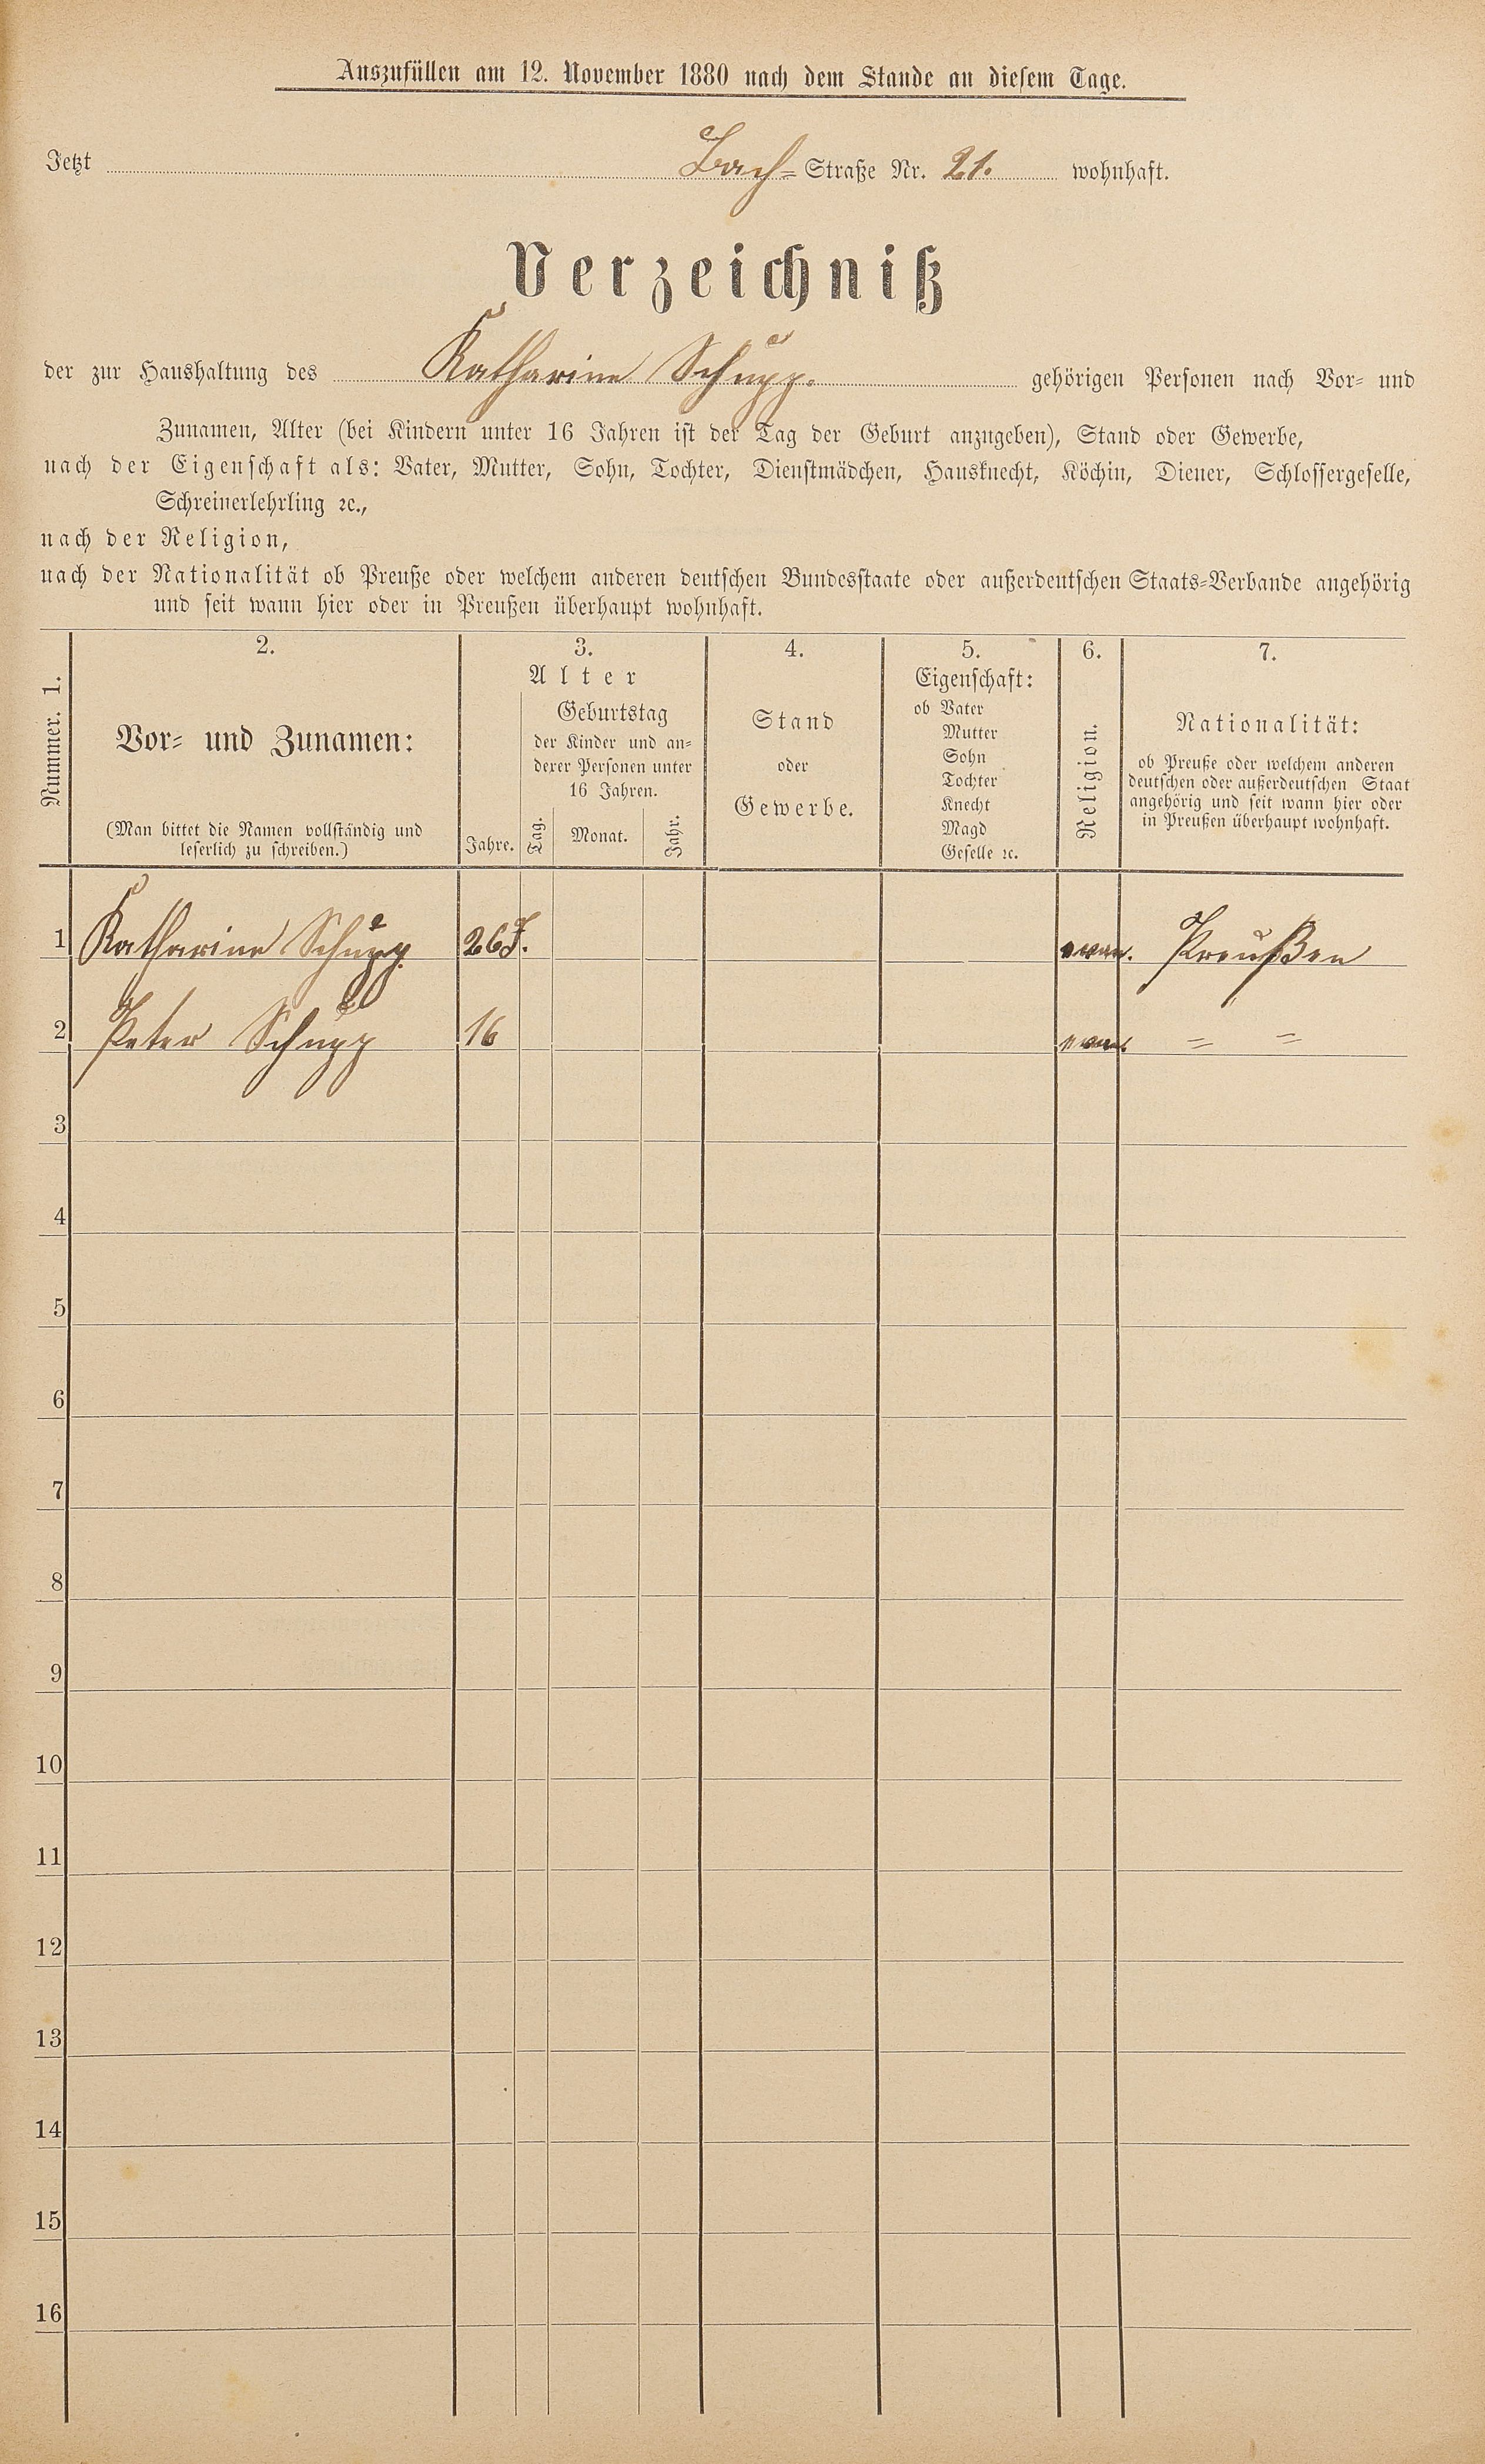 Auszufüllen am 12. November 1880 nach dem Stande an diesem Tage.
Jetzt Bach-Straße Nr. 21. wohnhaft.
Verzeichniß
der zur Haushaltung des Katharine Schupp. gehörigen Personen nach Vor- und
Zunamen, Alter (bei Kindern unter 16 Jahren ist der Tag der Geburt anzugeben), Stand oder Gewerbe,
nach der Eigenschaft als: Vater, Mutter, Sohn, Tochter, Dienstmädchen, Hausknecht, Köchin, Diener, Schlossergeselle,
Schreinerlehrling ꝛc.,
nach der Religion,
nach der Nationalität ob Preuße oder welchem anderen deutschen Bundesstaate oder außerdeutschen Staats-Verbande angehörig
und seit wann hier oder in Preußen überhaupt wohnhaft.
Nummer. 1.
2.
Vor- und Zunamen:
(Man bittet die Namen vollständig und
leserlich zu schreiben.)
3.
Alter
Jahre.
Geburtstag
der Kinder und an-
derer Personen unter
16 Jahren.
Tag. Monat. Jahr.
4.
Stand
oder
Gewerbe.
5.
Eigenschaft:
ob Vater
Mutter
Sohn
Tochter
Knecht
Magd
Geselle ꝛc.
6.
Religion.
7.
Nationalität:
ob Preuße oder welchem anderen
deutschen oder außerdeutschen Staat
angehörig und seit wann hier oder
in Preußen überhaupt wohnhaft.
1 Katharine Schupp 26 J. evan. Preußen
2 Peter Schupp 16 = =
3
4
5
6
7
8
9
10
11
12
13
14
15
16